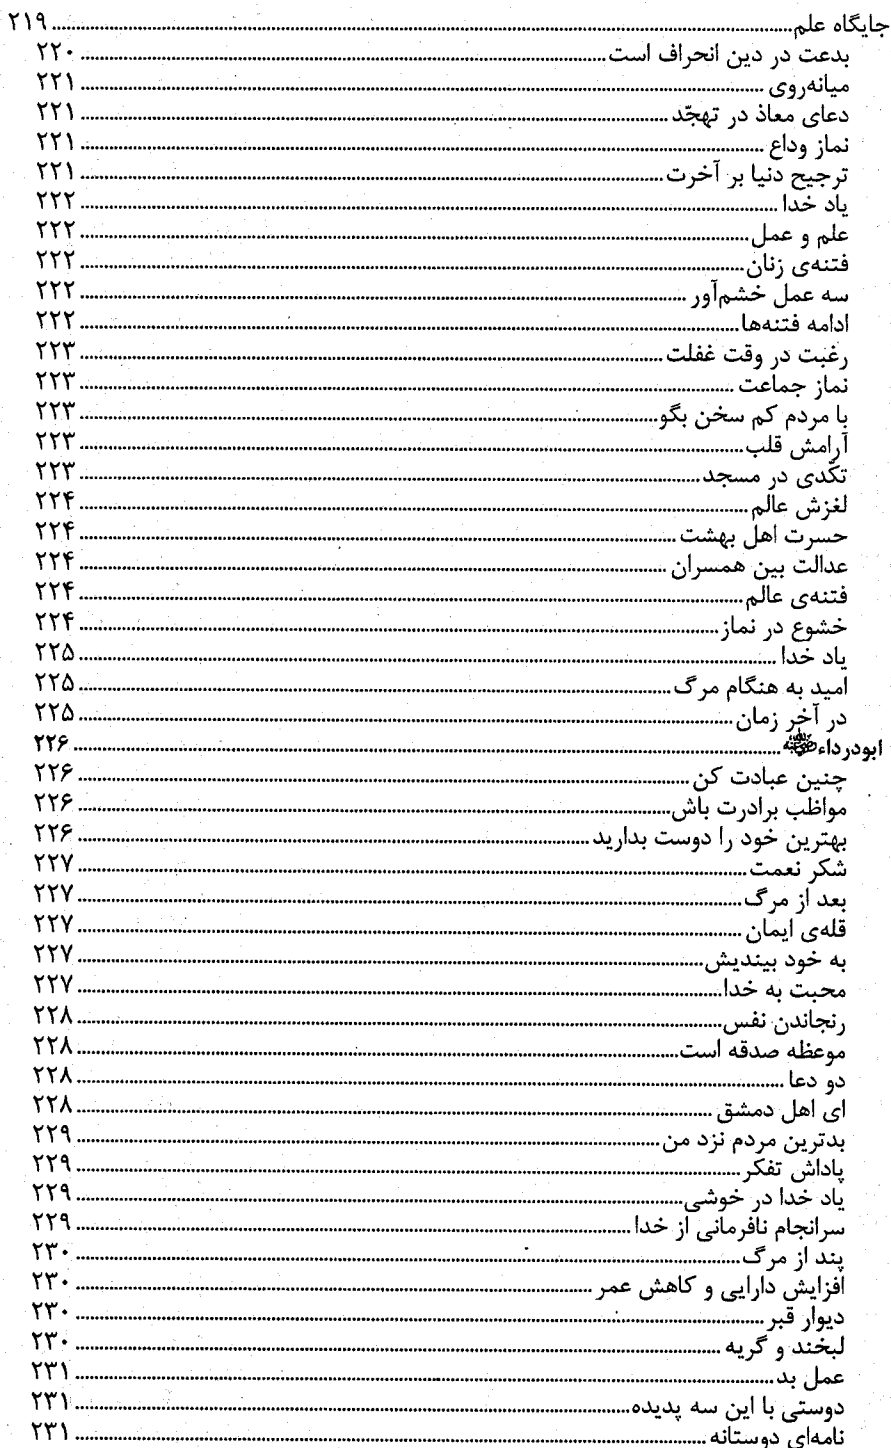 جایگاه علم ........ ۲۱۹
بدعت در دین انحراف است ........ ۲۲۰
میانه‌روی ........ ۲۲۱
دعای معاذ در تهجّد ........ ۲۲۱
نماز وداع ........ ۲۲۱
ترجیح دنیا بر آخرت ........ ۲۲۱
یاد خدا ........ ۲۲۲
علم و عمل ........ ۲۲۲
فتنه‌ی زنان ........ ۲۲۲
سه عمل خشم‌آور ........ ۲۲۲
ادامه فتنه‌ها ........ ۲۲۲
رغبت در وقت غفلت ........ ۲۲۳
نماز جماعت ........ ۲۲۳
با مردم کم سخن بگو ........ ۲۲۳
آرامش قلب ........ ۲۲۳
تکّدی در مسجد ........ ۲۲۳
لغزش عالم ........ ۲۲۴
حسرت اهل بهشت ........ ۲۲۴
عدالت بین همسران ........ ۲۲۴
فتنه‌ی عالم ........ ۲۲۴
خشوع در نماز ........ ۲۲۴
یاد خدا ........ ۲۲۵
امید به هنگام مرگ ........ ۲۲۵
در آخر زمان ........ ۲۲۵
ابودرداءرضی‌الله‌عنه ........ ۲۲۶
چنین عبادت کن ........ ۲۲۶
مواظب برادرت باش ........ ۲۲۶
بهترین خود را دوست بدارید ........ ۲۲۶
شکر نعمت ........ ۲۲۷
بعد از مرگ ........ ۲۲۷
قله‌ی ایمان ........ ۲۲۷
به خود بیندیش ........ ۲۲۷
محبت به خدا ........ ۲۲۷
رنجاندن نفس ........ ۲۲۸
موعظه صدقه است ........ ۲۲۸
دو دعا ........ ۲۲۸
ای اهل دمشق ........ ۲۲۸
بدترین مردم نزد من ........ ۲۲۹
پاداش تفکر ........ ۲۲۹
یاد خدا در خوشی ........ ۲۲۹
سرانجام نافرمانی از خدا ........ ۲۲۹
پند از مرگ ........ ۲۳۰
افزایش دارایی و کاهش عمر ........ ۲۳۰
دیوار قبر ........ ۲۳۰
لبخند و گریه ........ ۲۳۰
عمل بد ........ ۲۳۱
دوستی با این سه پدیده ........ ۲۳۱
نامه‌ای دوستانه ........ ۲۳۱